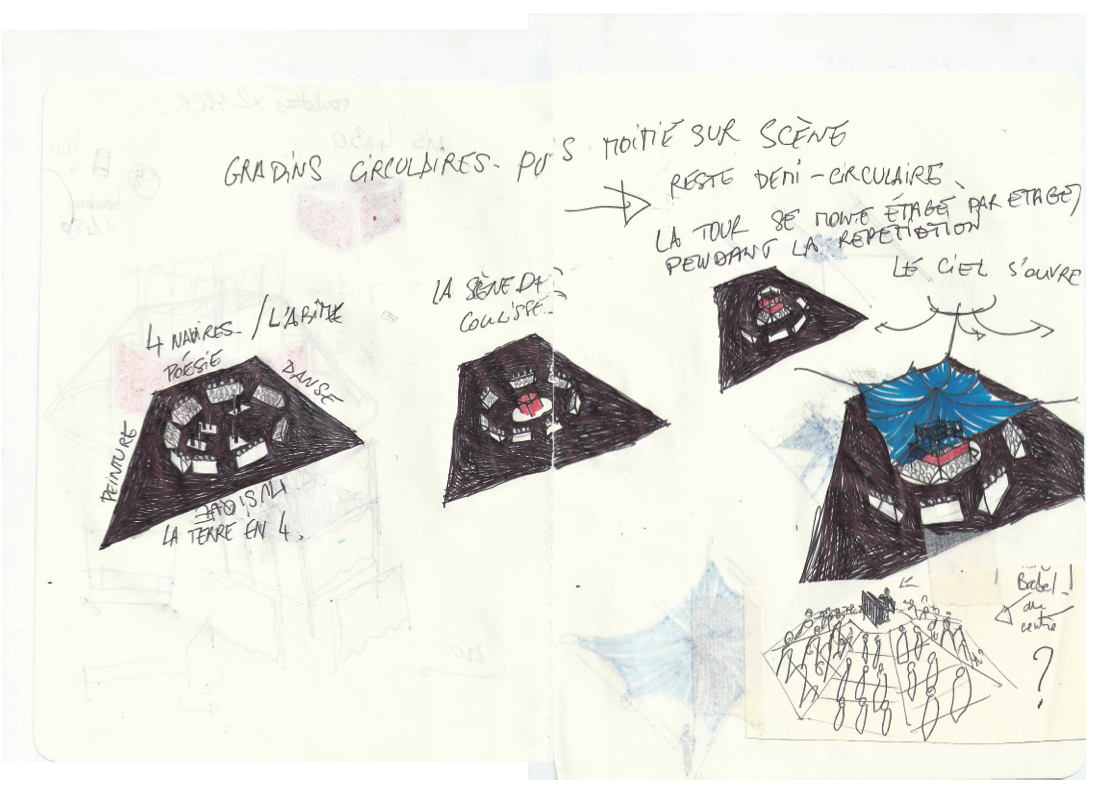 GRADINS CIRCULAIRES. PUIS MOITIÉ SUR SCÈNE
RESTE DEMI-CIRCULAIRE
LA TOUR SE MONTE ÉTAGE PAR ETAGE,
PENDANT LA REPETITION
LE CIEL S'OUVRE
LA SCÈNE DE
COULISSE
4 NAVIRES. / L'ABÎME
POÉSIE
DANSE
PEINTURE
MUSIQUE
LA TERRE EN 4.
Babel!
au
centre
?
roulettes x2
VIS 4x30
210